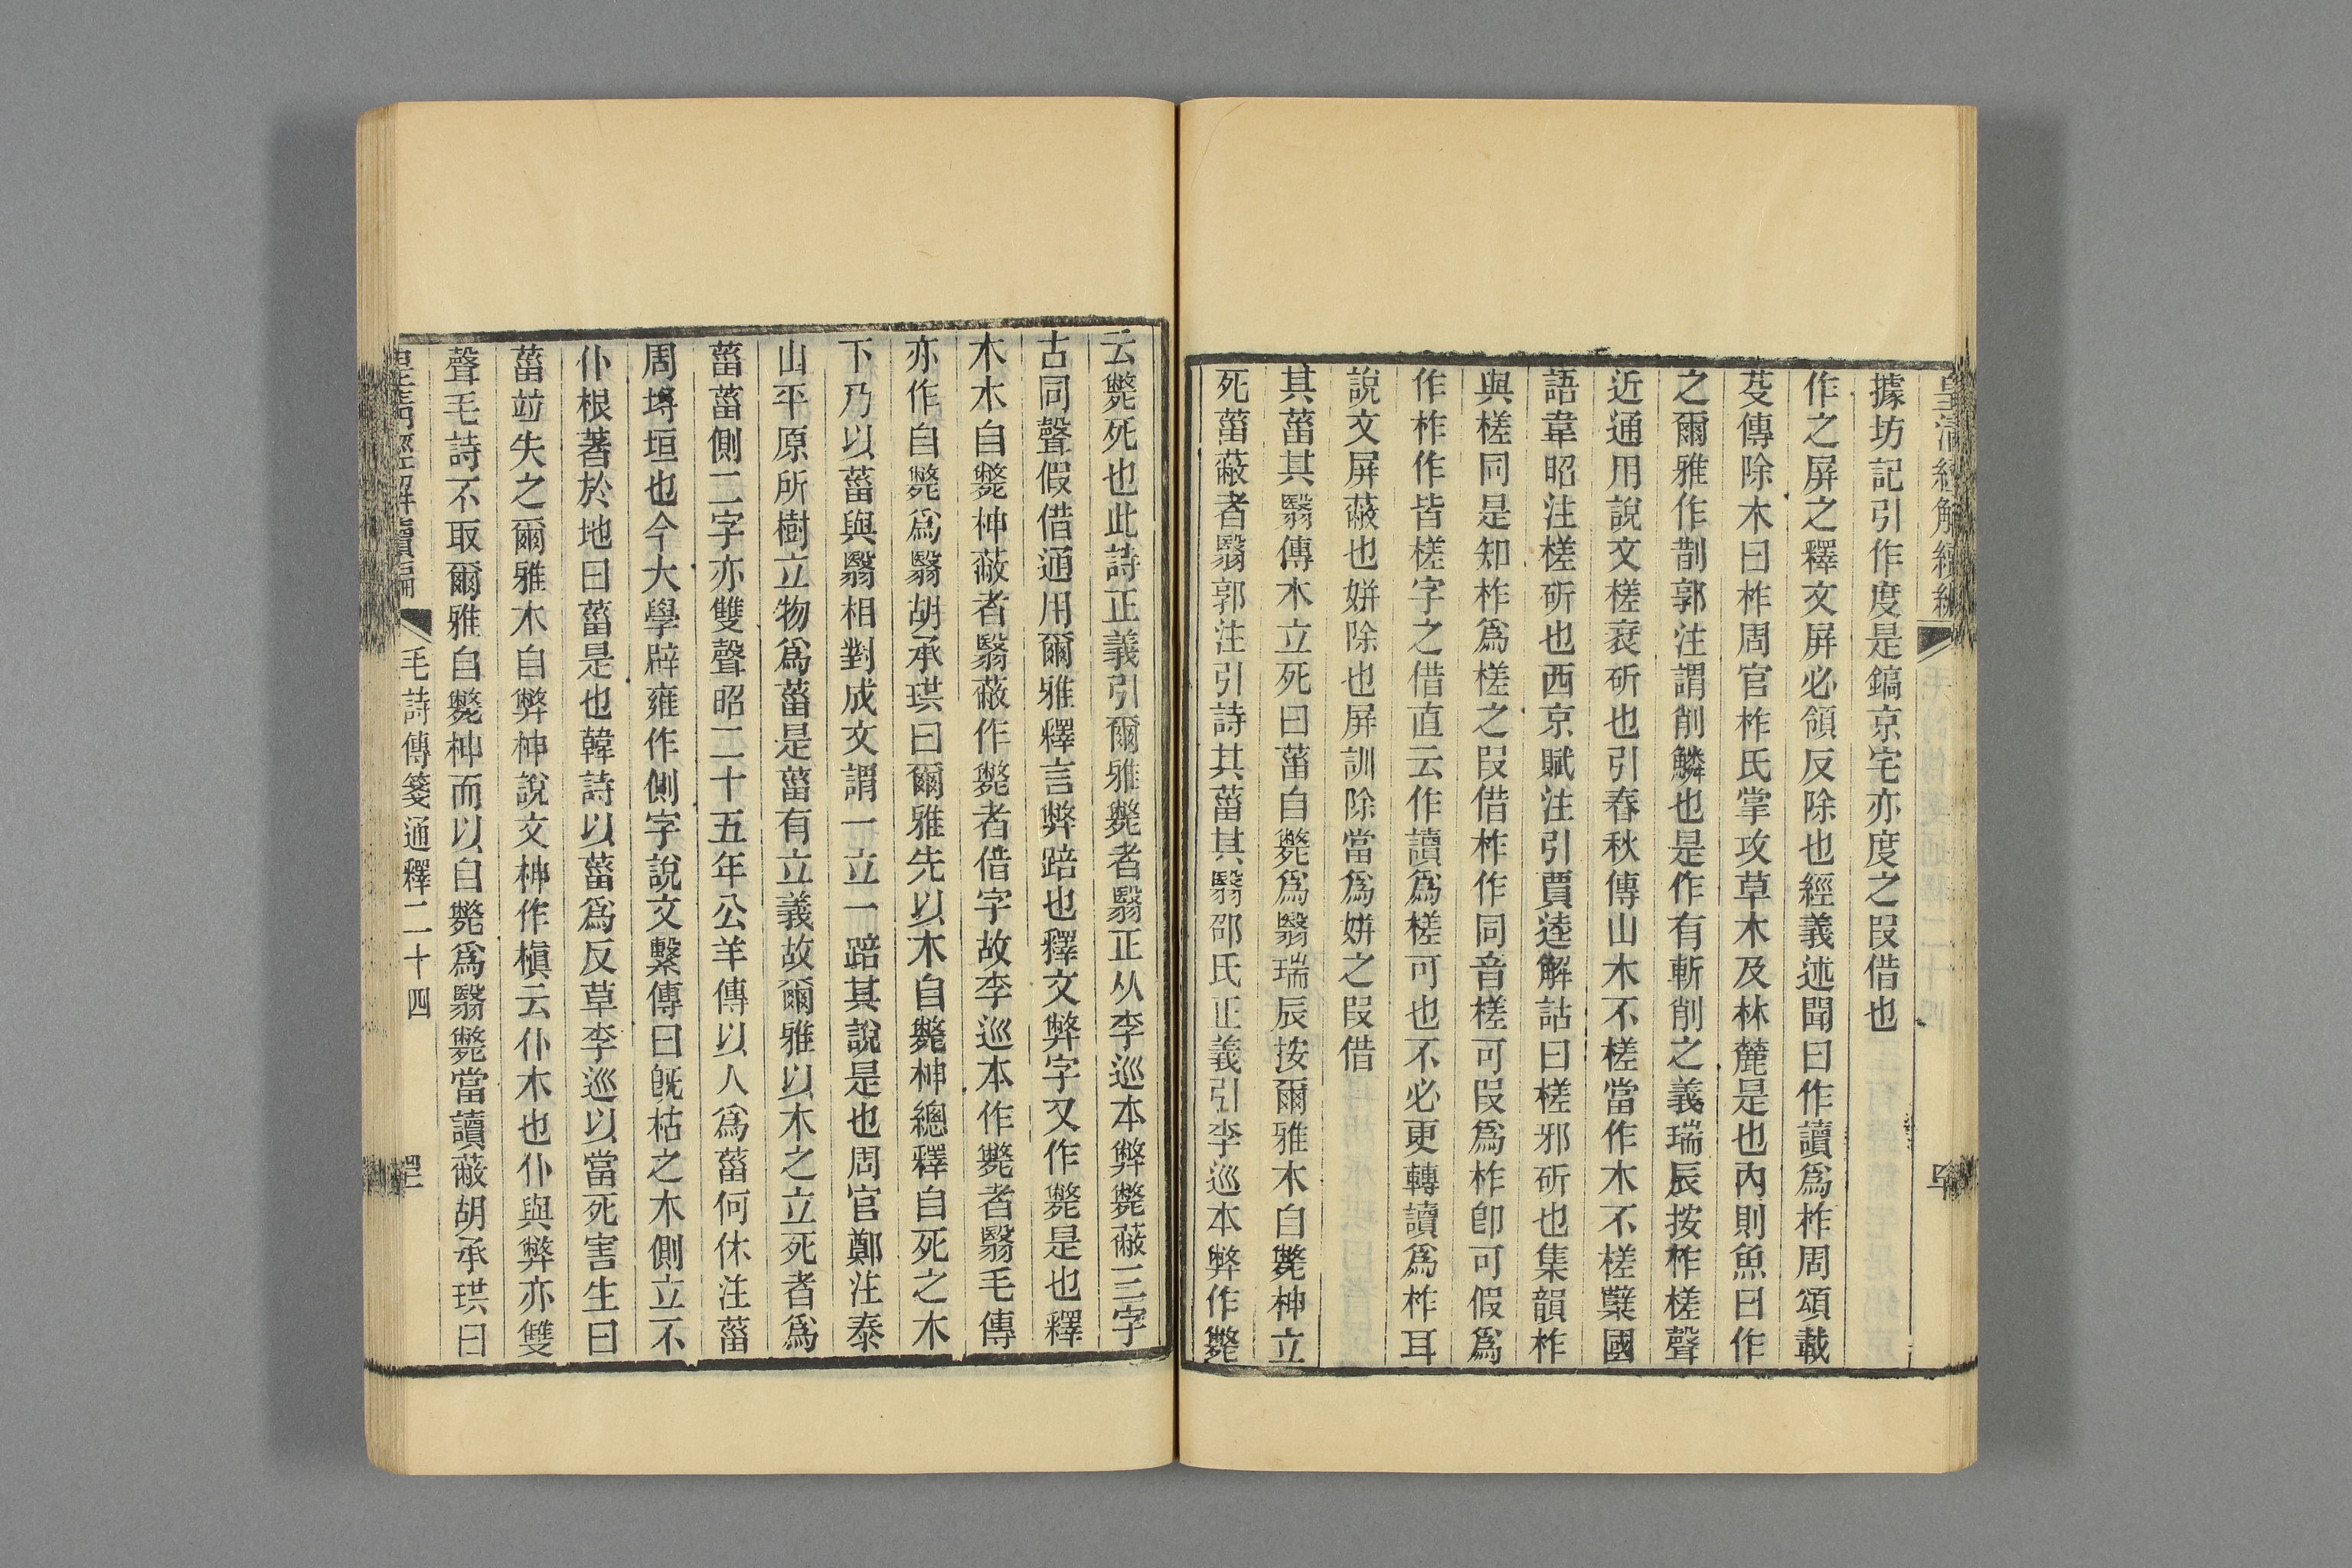 皇清經解續編
據坊記引作度是鎬京宅亦度之叚借也
作之屏之釋文屏必領反除也經義述聞曰作讀爲柞周頌載
芟傳除木曰柞周官柞氏掌攻草木及林麓是也內則魚曰作
之爾雅作斮郭注謂削鱗也是作有斬削之義瑞辰按柞槎聲
近通用說文槎衺斫也引春秋傳山木不槎當作木不槎櫱國
語韋昭注槎斫也西京賦注引賈逵解詁曰槎邪斫也集韻柞
與槎同是知柞爲槎之叚借柞作同音槎可叚爲柞卽可假爲
作柞作皆槎字之借直云作讀爲槎可也不必更轉讀爲柞耳
說文屏蔽也姘除也屏訓除當爲姘之叚借
其菑其翳傳木立死曰菑自斃爲翳瑞辰按爾雅木自斃柛立
死菑蔽者翳郭注引詩其菑其翳邵氏正義引李巡本弊作斃
云斃死也此詩正義引爾雅斃者翳正从李巡本弊斃蔽三字
古同聲假借通用爾雅釋言弊踣也釋文弊字又作斃是也釋
木木自斃柛蔽者翳蔽作斃者借字故李巡本作斃者翳毛傳
亦作自斃爲翳胡承珙曰爾雅先以木自斃柛總釋自死之木
下乃以菑與翳相對成文謂一立一踣其說是也周官鄭注泰
山平原所樹立物爲菑是菑有立義故爾雅以木之立死者爲
菑菑側二字亦雙聲昭二十五年公羊傳以人爲菑何休注菑
周埓垣也今大學辟雍作側字說文繫傳曰旣枯之木側立不
仆根著於地曰菑是也韓詩以菑爲反草李巡以當死害生曰
菑竝失之爾雅木自弊柛說文柛作槙云仆木也仆與弊亦雙
聲毛詩不取爾雅自斃柛而以自斃爲翳斃當讀蔽胡承珙曰
皇清經解續編
毛詩傳箋通釋二十四